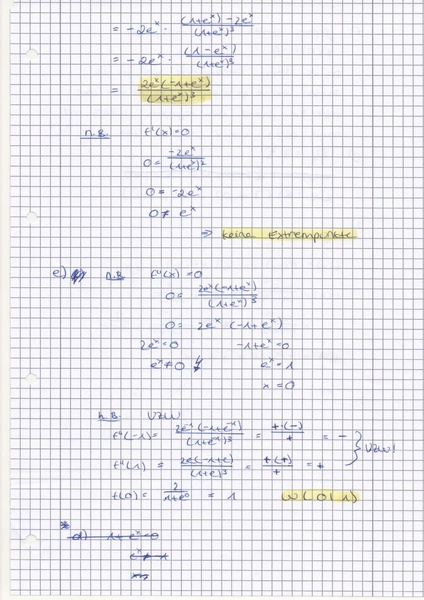 = -2eˣ · ((1+eˣ) - 2eˣ)/(1+eˣ)³
= -2eˣ · (1-eˣ)/(1+eˣ)³
= 2eˣ(-1+eˣ)/(1+eˣ)³
n.B. f'(x)=0
0 = -2eˣ/(1+eˣ)²
0 = -2eˣ
0 ≠ eˣ
⇒ keine Extrempunkte
e) n.B. f''(x) = 0
0 = 2eˣ(-1+eˣ)/(1+eˣ)³
0 = 2eˣ (-1+eˣ)
2eˣ=0 -1+eˣ=0
eˣ≠0 ↯ eˣ = 1
x = 0
h.B. VZW
f''(-1) = 2e⁻¹(-1+e⁻¹)/(1+e⁻¹)³ = +·(-)/+ = -
f''(1) = 2e(-1+e)/(1+e)³ = +·(+)/+ = + } VZW!
f(0) = 2/(1+e⁰) = 1 W(0|1)
* d) 1+eˣ=0
eˣ≠-1